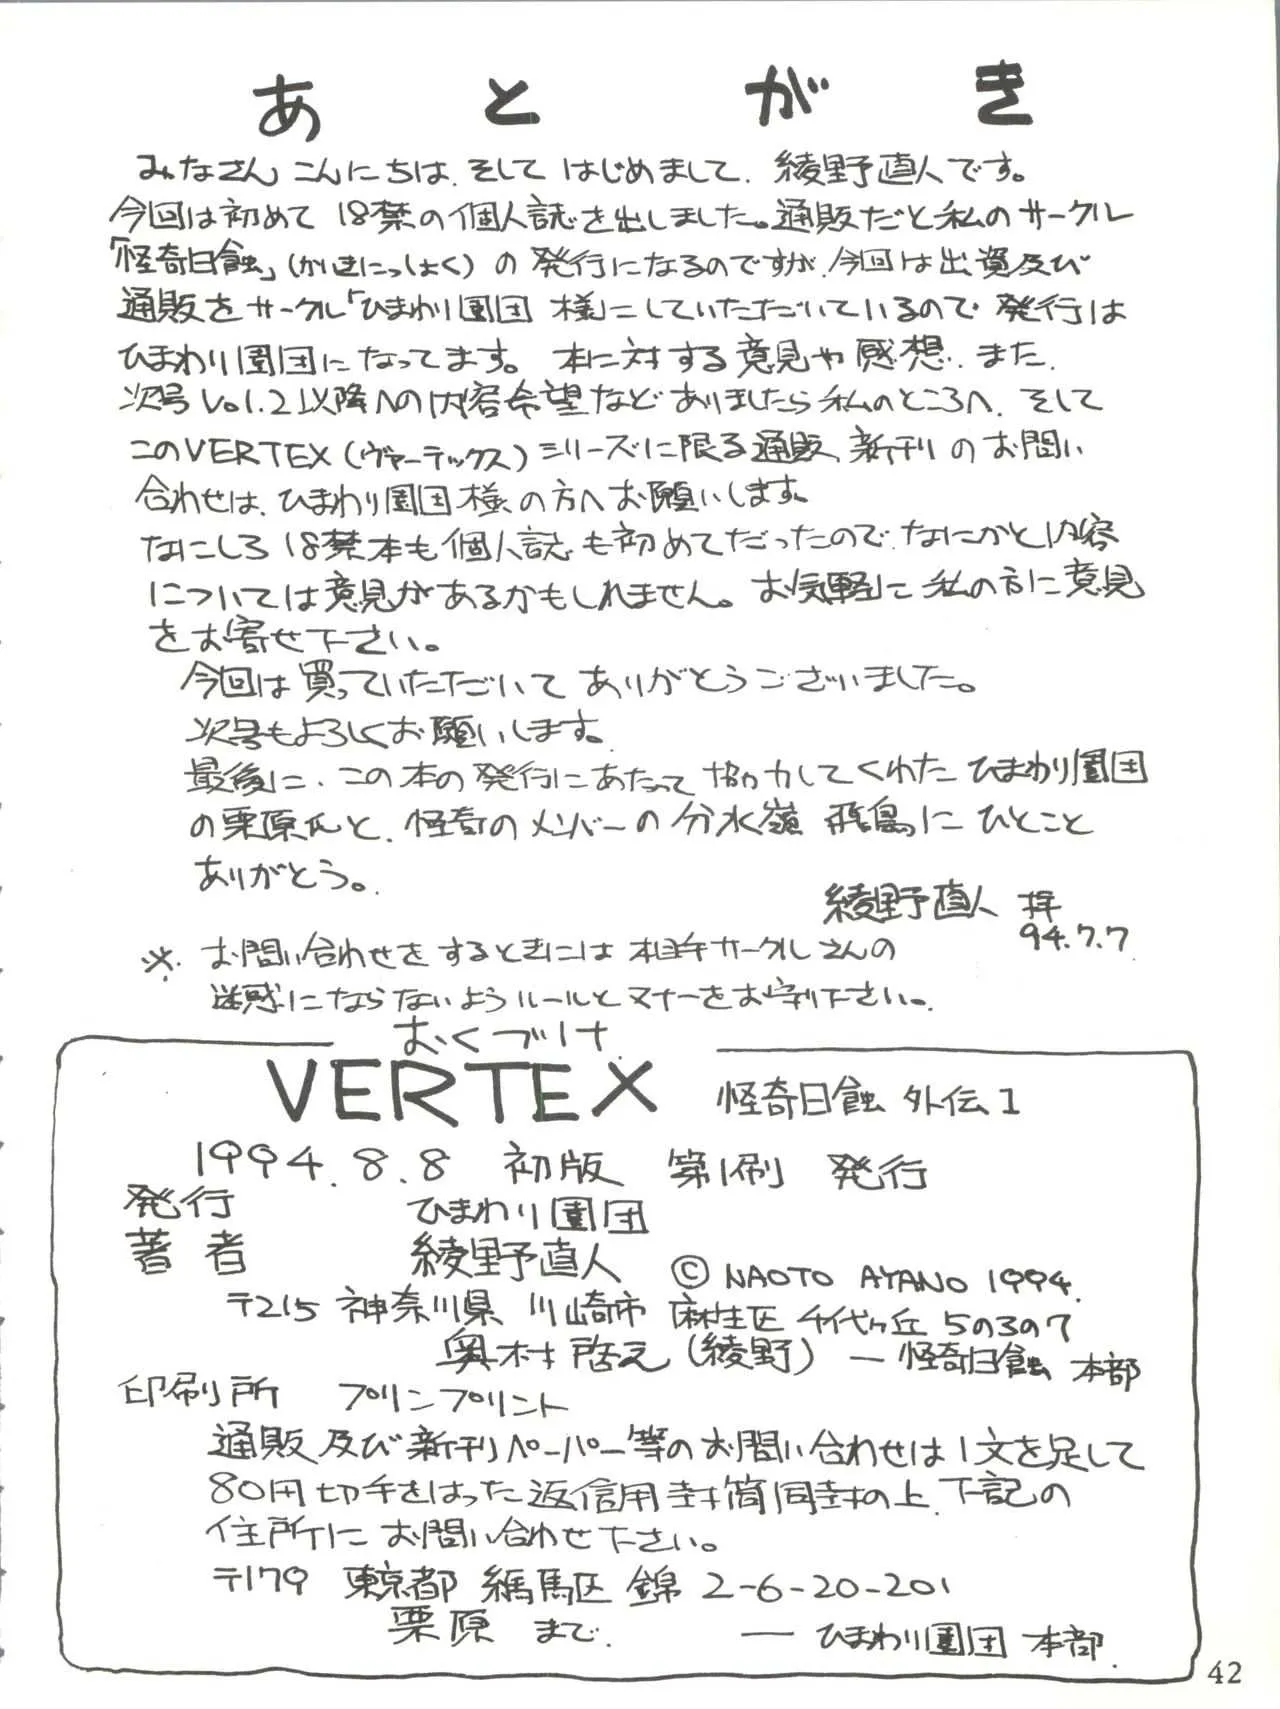 あとがき
みなさん こんにちは、そして はじめまして、綾野直人です。
今回は初めて 18禁の個人誌を出しました。通販だと私のサークル
「怪奇日蝕」(かいきにっしょく) の 発行になるのですが、今回は出資及び
通販をサークル「ひまわり園団 様にしていただいているので 発行は
ひまわり園団になってます。 本に対する意見や感想、また、
次号Vol.2以降への内容希望などありましたら私のところへ、そして
このVERTEX(ヴァーテックス)シリーズに限る通販、新刊のお問い
合わせは、ひまわり園団様の方へお願いします。
なにしろ 18禁本も個人誌も初めてだったので、なにかと内容
については意見があるかもしれません。お気軽に 私の方に意見
をお寄せ下さい。
今回は買っていただいて ありがとうございました。
次号もよろしくお願いします。
最後に、この本の発行にあたって 協力してくれた ひまわり園団
の栗原氏と、怪奇のメンバーの 分水嶺 飛鳥に ひとこと
ありがとう。
綾野直人 拝
94.7.7
※ お問い合わせをするときには 相手サークルさんの
迷惑にならないようルールとマナーをお守り下さい。
おくづけ
VERTEX 怪奇日蝕 外伝1
1994.8.8 初版 第1刷 発行
発行 ひまわり園団
著者 綾野直人 © NAOTO AYANO 1994.
〒215 神奈川県 川崎市 麻生区 千代ヶ丘 5の3の7
奥村 (綾野) ― 怪奇日蝕 本部
印刷所 プリンプリント
通販及び新刊ペーパー等のお問い合わせは1文を足して
80円切手をはった返信用封筒同封の上、下記の
住所に お問い合わせ下さい。
〒179 東京都 練馬区 錦 2-6-20-201
栗原 まで. ― ひまわり園団 本部.
42